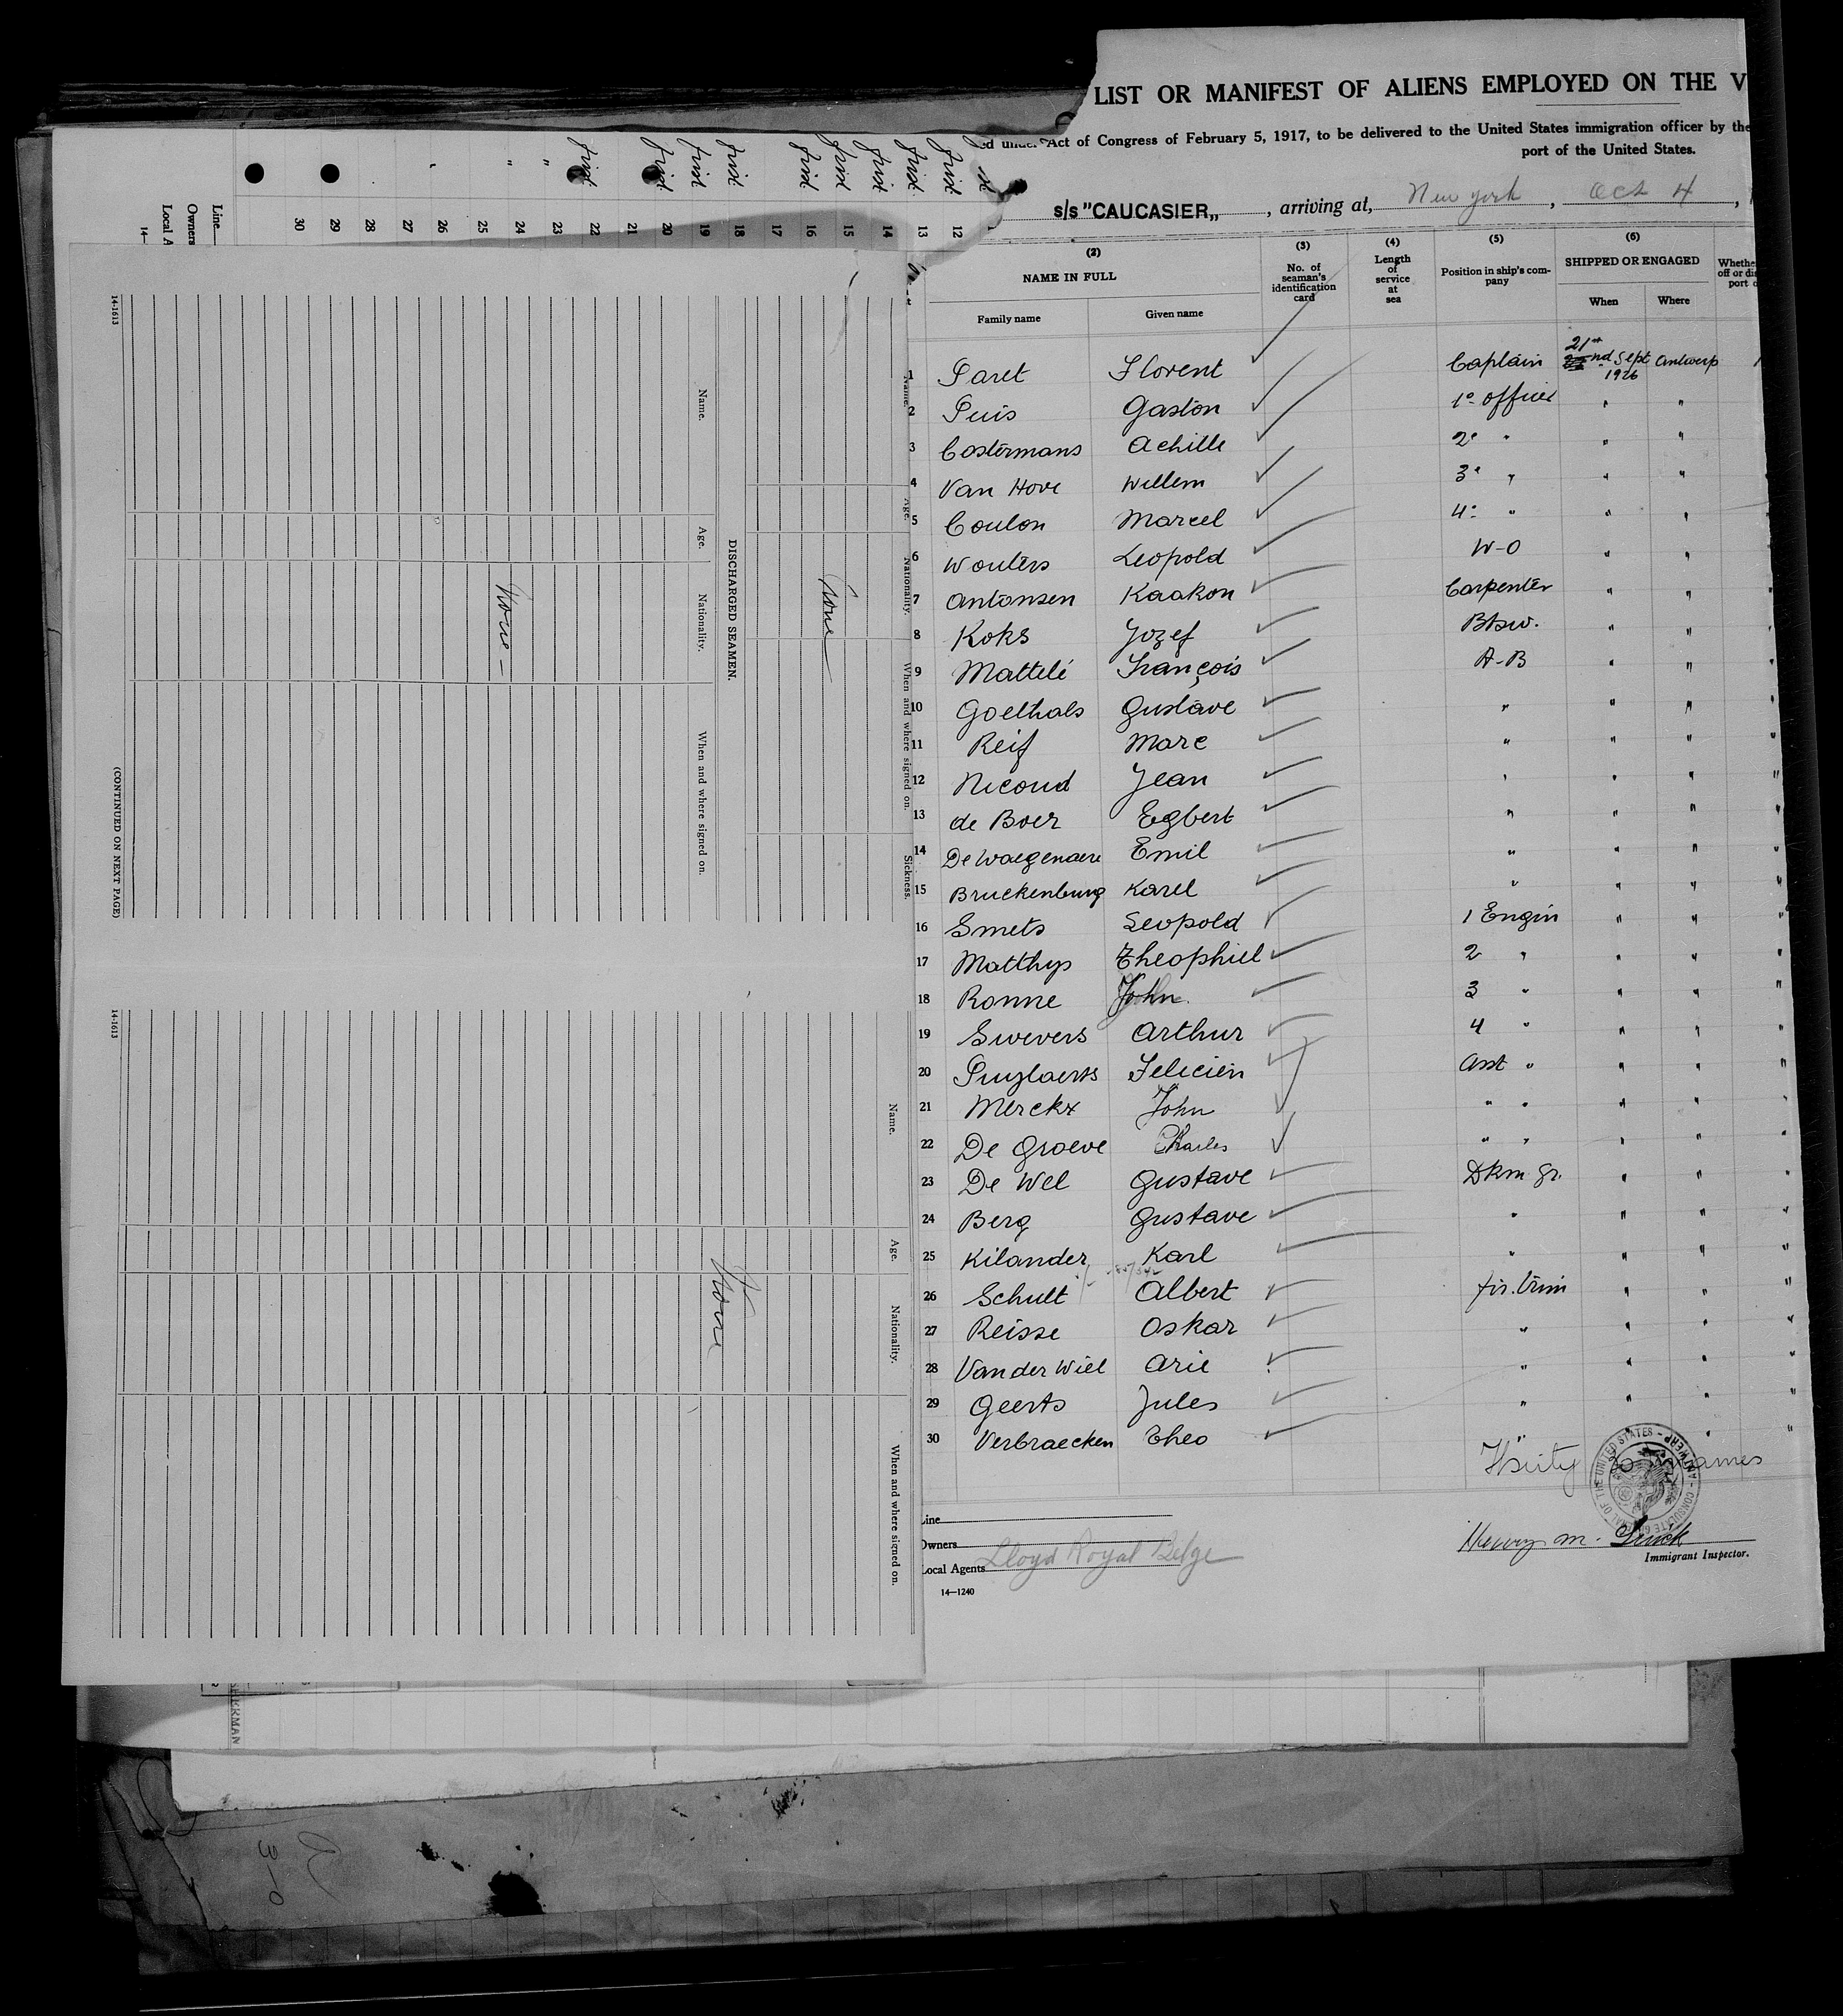 LIST OR MANIFEST OF ALIENS EMPLOYED ON THE V
Act of Congress of February 5, 1917, to be delivered to the United States immigration officer by the
port of the United States.
s/s "CAUCASIER„ , arriving at, New York , Oct 4 ,
(2) NAME IN FULL (3) No. of seaman's identification card (4) Length of service at sea (5) Position in ship's company (6) SHIPPED OR ENGAGED
Family name Given name When Where
1 Paret Florent Captain 21st Sept 1926 Antwerp
2 Puis Gaston 1° officer " "
3 Costermans Achille 2e " " "
4 Van Hove Willem 3e " " "
5 Coulon Marcel 4e " " "
6 Wouters Leopold W-O " "
7 Antonsen Kaakon Carpenter " "
8 Koks Jozef Btsw. " "
9 Mattelé François A-B " "
10 Goethals Gustave " " "
11 Reif Marc " " "
12 Nicoud Jean " " "
13 de Boer Egbert " " "
14 De Waegenaere Emil " " "
15 Bruckenburg Karel " " "
16 Smets Leopold 1 Engin " "
17 Matthys Theophiel 2 " " "
18 Ronne John 3 " " "
19 Swevers Arthur 4 " " "
20 Puylaerts Felicien Asst " " "
21 Merckx John " " " "
22 De Groeve Charles " " " "
23 De Wel Gustave Dkm gr. " "
24 Berg Gustave " " "
25 Kilander Karl " " "
26 Schult Albert fir. trim " "
27 Reisse Oskar " " "
28 Van der Wiel Arie " " "
29 Geerts Jules " " "
30 Verbraecken Theo " " "
Thirty names
CONSULATE GENERAL OF THE UNITED STATES - ANTWERP
Line
Owners
Local Agents Lloyd Royal Belge
Henry M.
Immigrant Inspector.
14—1240
first first first first first first first first first first
12 13 14 15 16 17 18 19 20 21 22 23 24 25 26 27 28 29 30
Line
Owners
Local A
14—
Name. Age. Nationality. When and where signed on. Sickness.
None
DISCHARGED SEAMEN.
Name. Age. Nationality. When and where signed on.
None -
14-1613
(CONTINUED ON NEXT PAGE)
Name. Age. Nationality. When and where signed on.
None
14-1613
3-0